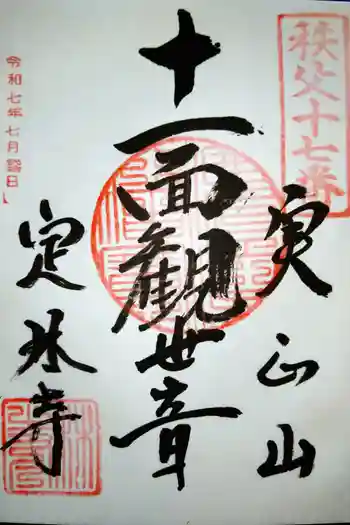 秩父十七番
実正山
十一面観世音
定林寺
令和七年七月詣日